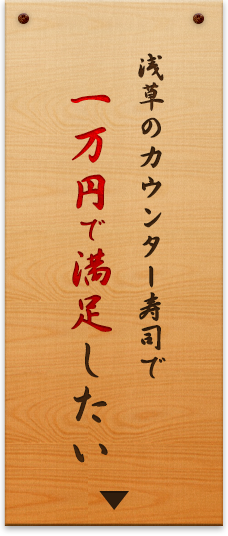 浅草のカウンター寿司で
一万円で満足したい